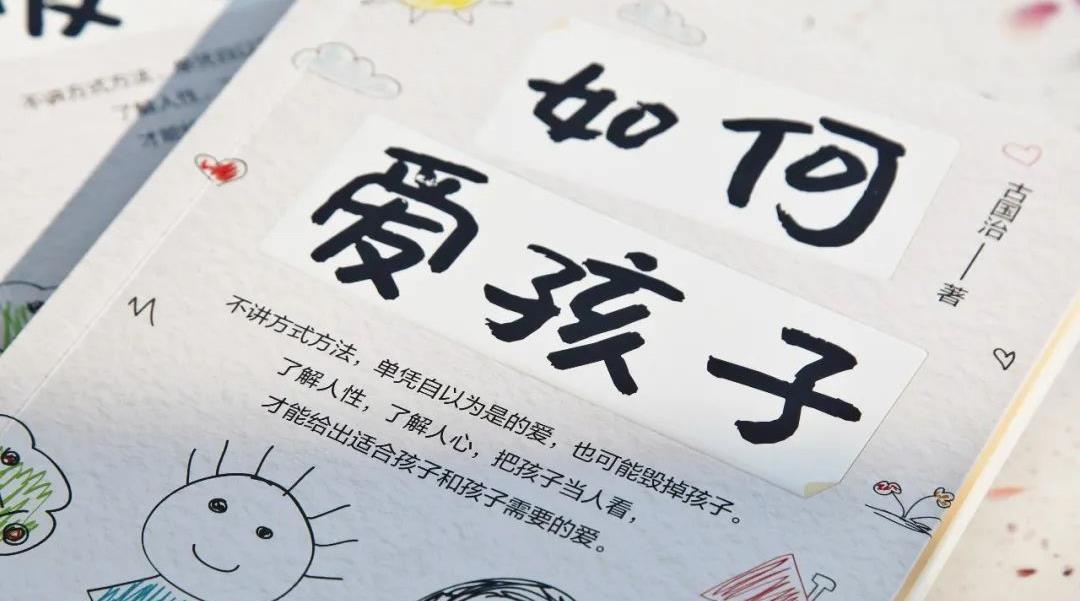 如何
爱孩子
古国治——著
不讲方式方法，单凭自以为是的爱，也可能毁掉孩子。
了解人性，了解人心，把孩子当人看，
才能给出适合孩子和孩子需要的爱。
不讲方式方法，单凭自以
了解人性
才能